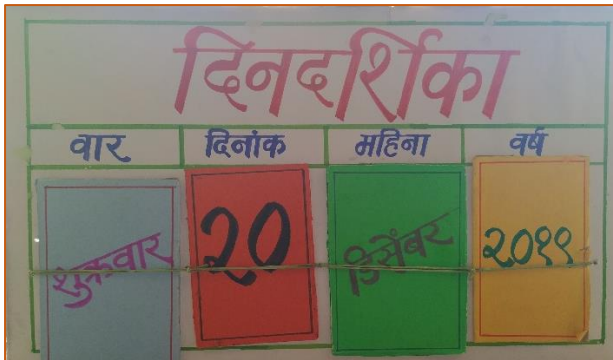 दिनदर्शिका
वार दिनांक महिना वर्ष
शुक्रवार २० डिसेंबर २०१९